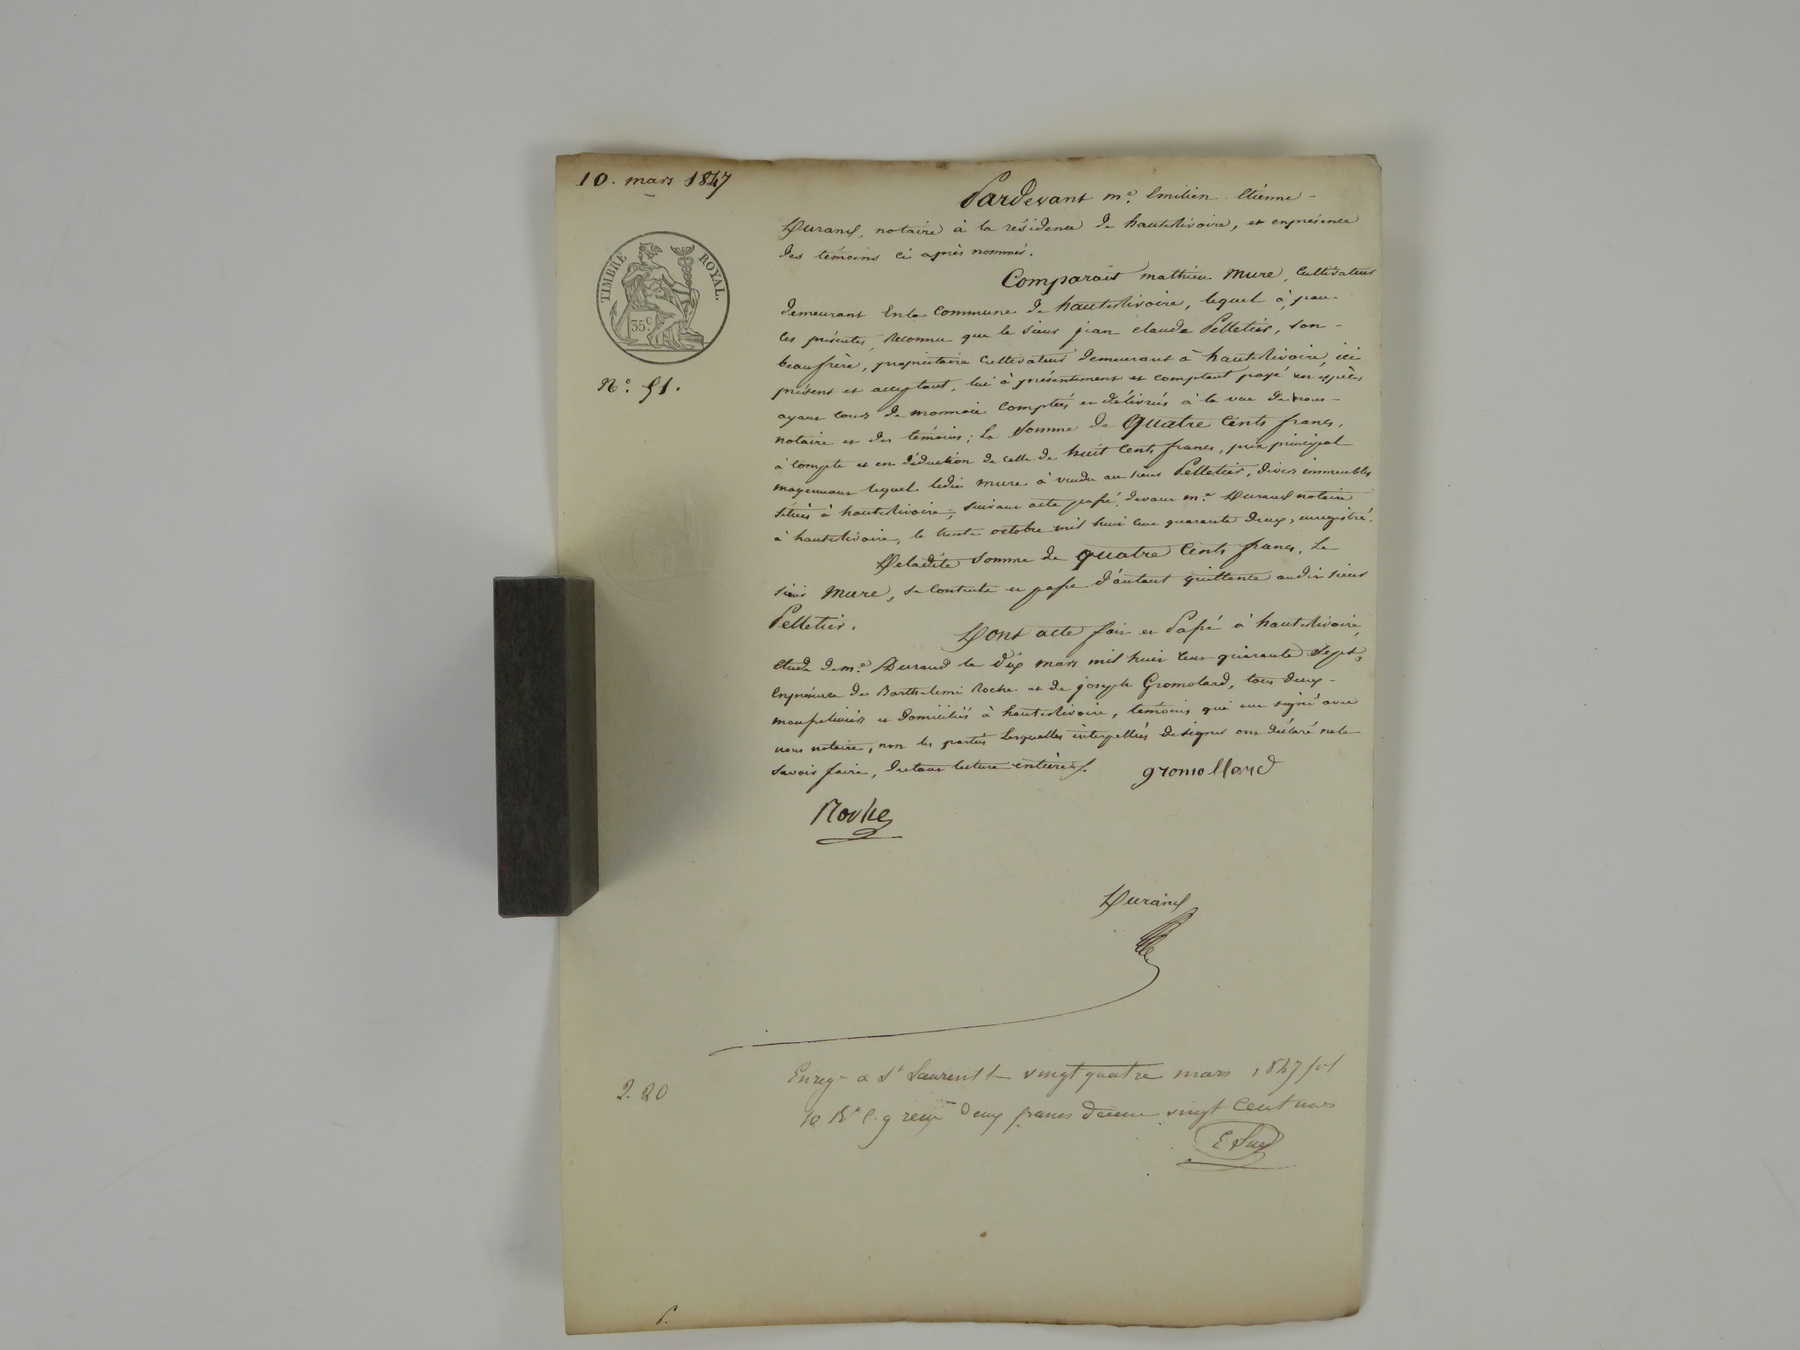 10. mars 1847
TIMBRE ROYAL.
35 c.
N.° 51.
Pardevant m.e Emilien Etienne -
Durand, notaire à la résidence de hauterivoire, et en présence
des témoins ci après nommés.
Comparait mathieu Mure, cultivateur
demeurant en la commune de hauterivoire, lequel à, par
ces présentes, reconnu que le sieur jean claude Pelletier, son -
beaufrère, propriétaire cultivateur demeurant à hauterivoire, ici
présent et acceptant, lui à présentement et comptant payé en espèces
ayant cours de monnoie comptées et délivrées à la vue de nous -
notaire et des témoins; La Somme de Quatre Cents francs,
à compte et en déduction de celle de huit Cents francs, prix principal
moyennant lequel ledit Mure à vendu au sieur Pelletier, divers immeubles
situés à hauterivoire, suivant acte passé devant m.e Durand notaire
à hauterivoire, le trente octobre mil huit cent quarante deux, enregistré.
De ladite Somme de quatre Cents francs, Le
sieur Mure, se contente et passe d'autant quittance audit sieur
Pelletier.
Dont acte fait et Passé à hauterivoire,
étude de m.e Durand le dix mars mil huit cent quarante sept,
En présence de Barthelemi Roche et de joseph Gromolard, tous deux -
et domiciliés à hauterivoire, témoins qui ont signé avec
nous notaire, non les parties lesquelles interpellées de signer ont déclaré ne le
savoir faire, du tout lecture entière /.
gromollard
Roche
Durand
2. 20
Enreg. a St Laurent le vingt quatre mars 1847 fol
10 R.° C. 9 reçu deux francs décime vingt centimes